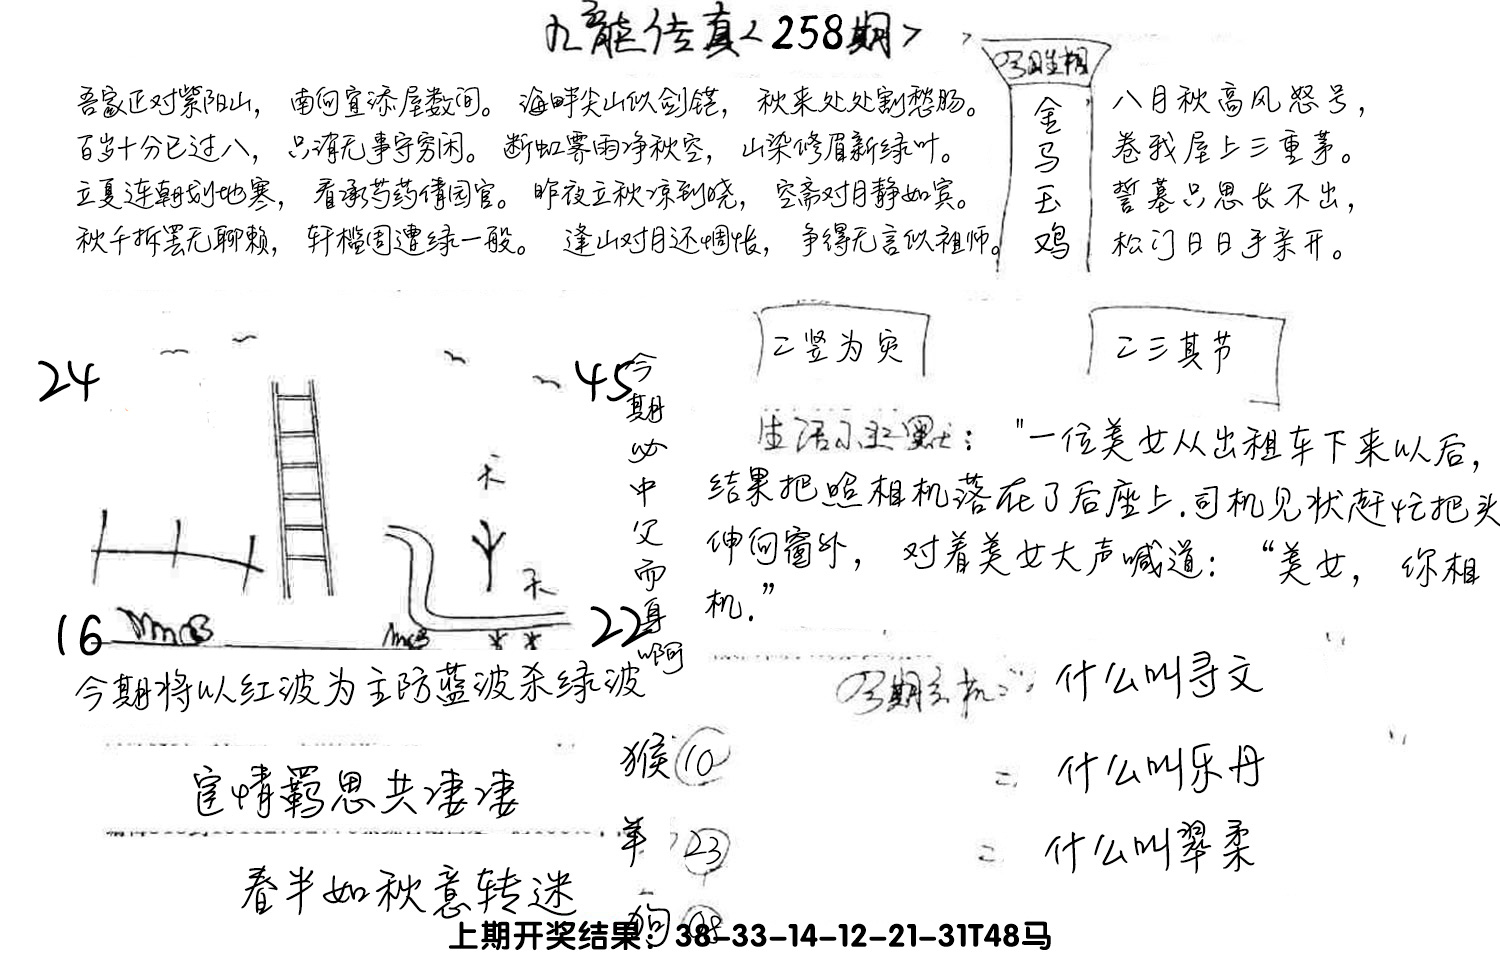 九龙传真<258期>
今日生相
金
马
玉
鸡
吾家正对紫阳山，南向宜添屋数间。海畔尖山似剑铓，秋来处处割愁肠。
百岁十分已过八，只消无事守穷闲。断虹霁雨净秋空，山染修眉新绿叶。
立夏连朝刬地寒，看承芍药倩园官。昨夜立秋凉到晓，空斋对月静如宾。
秋千拆罢无聊赖，轩槛周遭绿一般。逢山对月还惆怅，争得无言似祖师。
八月秋高风怒号，
卷我屋上三重茅。
誓墓只思长不出，
松门日日手亲开。
24
45
16
22
天
天
今期必中父而身啊
今期将以红波为主防蓝波杀绿波
二竖为灾
二三其节
生活小幽默："一位美女从出租车下来以后，
结果把照相机落在了后座上.司机见状赶忙把头
伸向窗外，对着美女大声喊道："美女，你相
机."
今期玄机 什么叫寻文
二 什么叫乐丹
二 什么叫翠柔
宦情羁思共凄凄
春半如秋意转迷
猴 10
羊 23
狗 08
上期开奖结果：38-33-14-12-21-31T48马